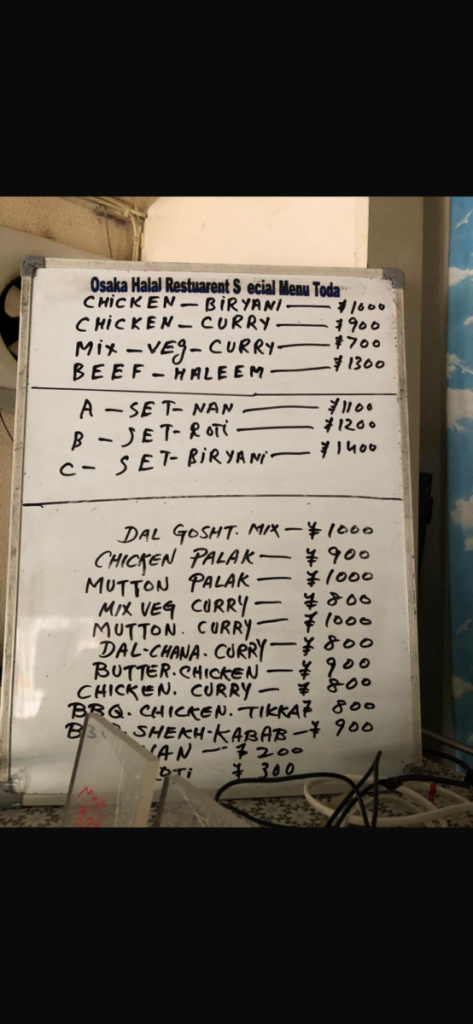 Osaka Halal Restuarent S ecial Menu Toda
CHICKEN — BIRYANI — ¥1000
CHICKEN — CURRY — ¥900
MIX — VEG — CURRY — ¥700
BEEF — HALEEM — ¥1300
A — SET — NAN — ¥1100
B — SET — ROTI — ¥1200
C — SET — BIRYANI — ¥1400
DAL GOSHT. MIX — ¥1000
CHICKEN PALAK — ¥900
MUTTON PALAK — ¥1000
MIX VEG CURRY — ¥800
MUTTON. CURRY — ¥1000
DAL-CHANA. CURRY — ¥800
BUTTER. CHICKEN — ¥900
CHICKEN. CURRY — ¥800
BBQ. CHICKEN. TIKKA ¥ 800
SHEKH-KABAB — ¥900
AN — ¥200
OTI ¥300